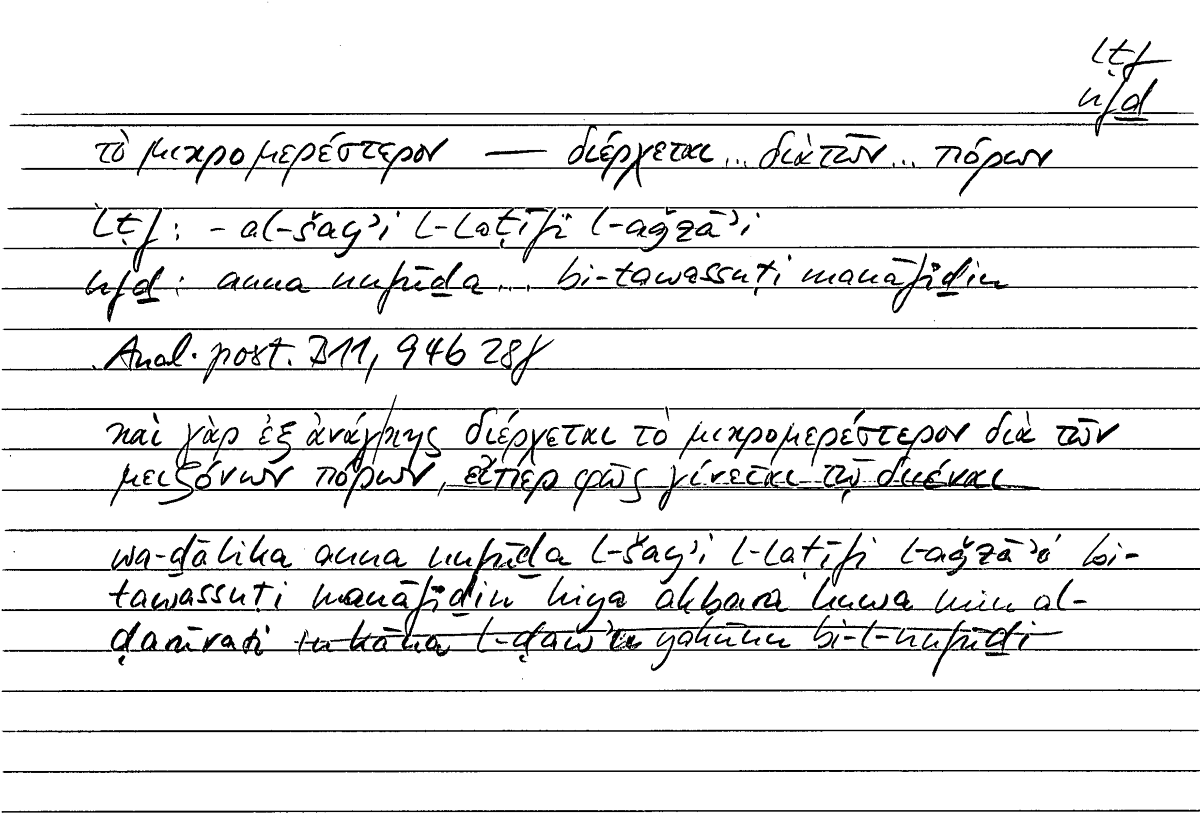 lṭf
nfḏ
τὸ μικρομερέστερον — διέρχεται ... διὰ τῶν ... πόρων
lṭf : - al-šayʾi l-laṭīfi l-aǧzāʾi
nfḏ : anna nufūḏa ... bi-tawassuṭi manāfiḏin
Anal. post. B11, 94b 28f
καὶ γὰρ ἐξ ἀνάγκης διέρχεται τὸ μικρομερέστερον διὰ τῶν
μειζόνων πόρων, εἴπερ φῶς γίνεται τῷ διιέναι
wa-ḏālika anna nufūḏa l-šayʾi l-laṭīfi l-aǧzāʾi bi-
tawassuṭi manāfiḏin hiya akbara huwa min al-
ḍarūrati in kāna l-ḍawʾu yakūnu bi-l-nufūḏi